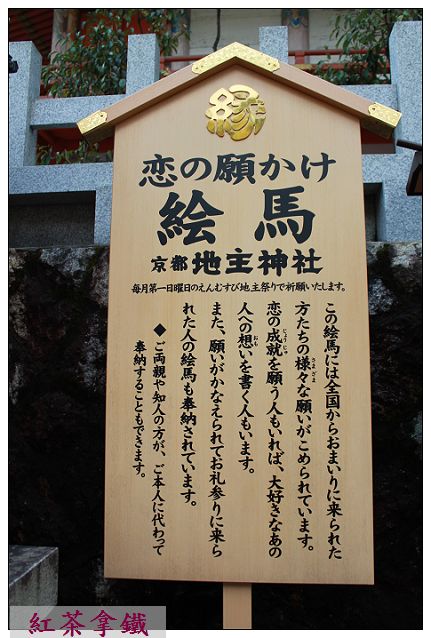 縁
恋の願かけ
絵馬
京都 地主神社
毎月第一日曜日のえんむすび地主祭りで祈願いたします。
この絵馬には全国からおまいりに来られた
方たちの様々な願いがこめられています。
恋の成就を願う人もいれば、大好きなあの
人への想いを書く人もいます。
また、願いがかなえられてお礼参りに来ら
れた人の絵馬も奉納されています。
◆ご両親や知人の方が、ご本人に代わって
奉納することもできます。
紅茶拿鐵